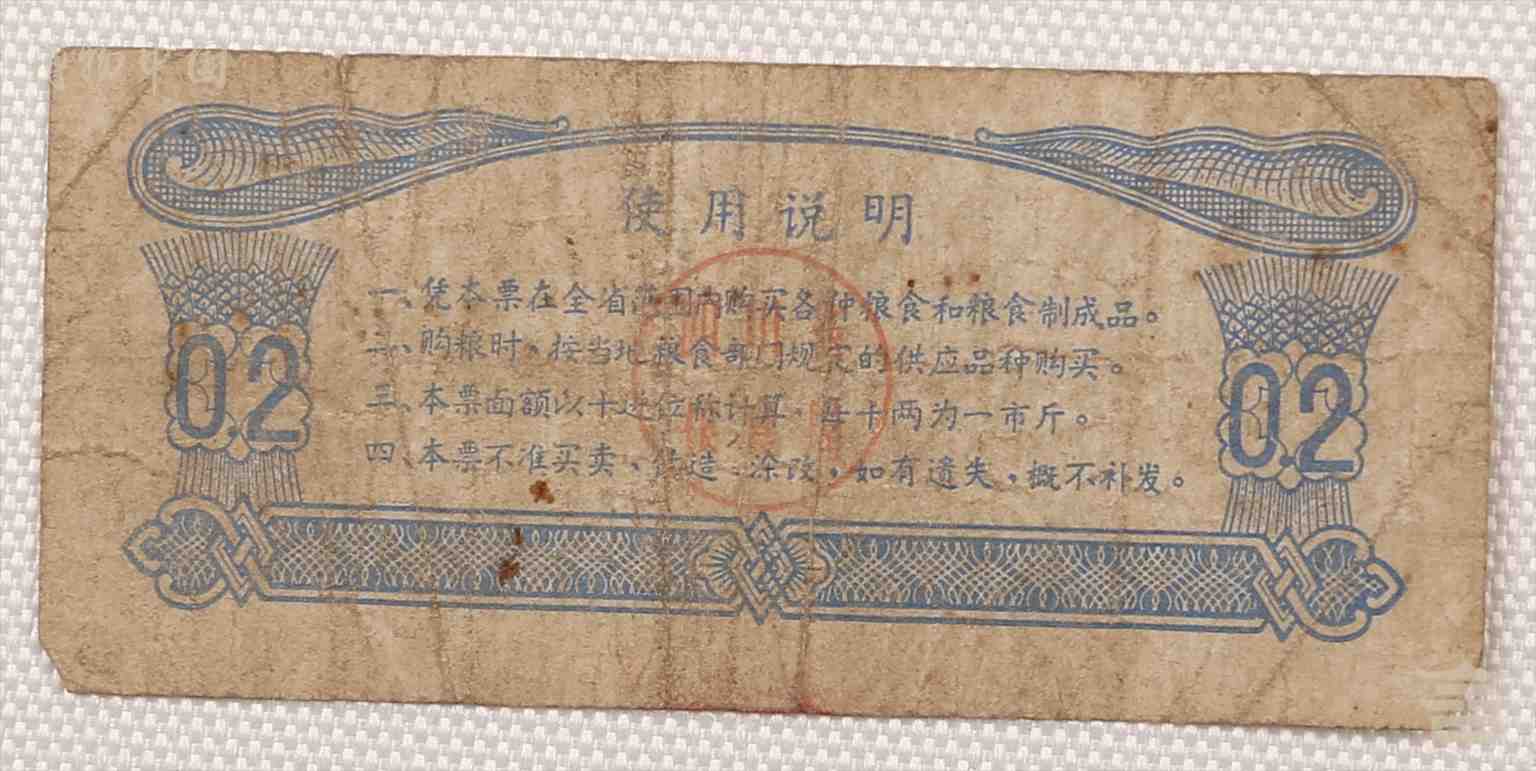 使用说明
一、凭本票在全省范围内购买各种粮食和粮食制成品。
二、购粮时，按当地粮食部门规定的供应品种购买。
0.2
0.2
三、本票面额以十进位称计算，每十两为一市斤。
四、本票不准买卖、伪造、涂改，如有遗失，概不补发。